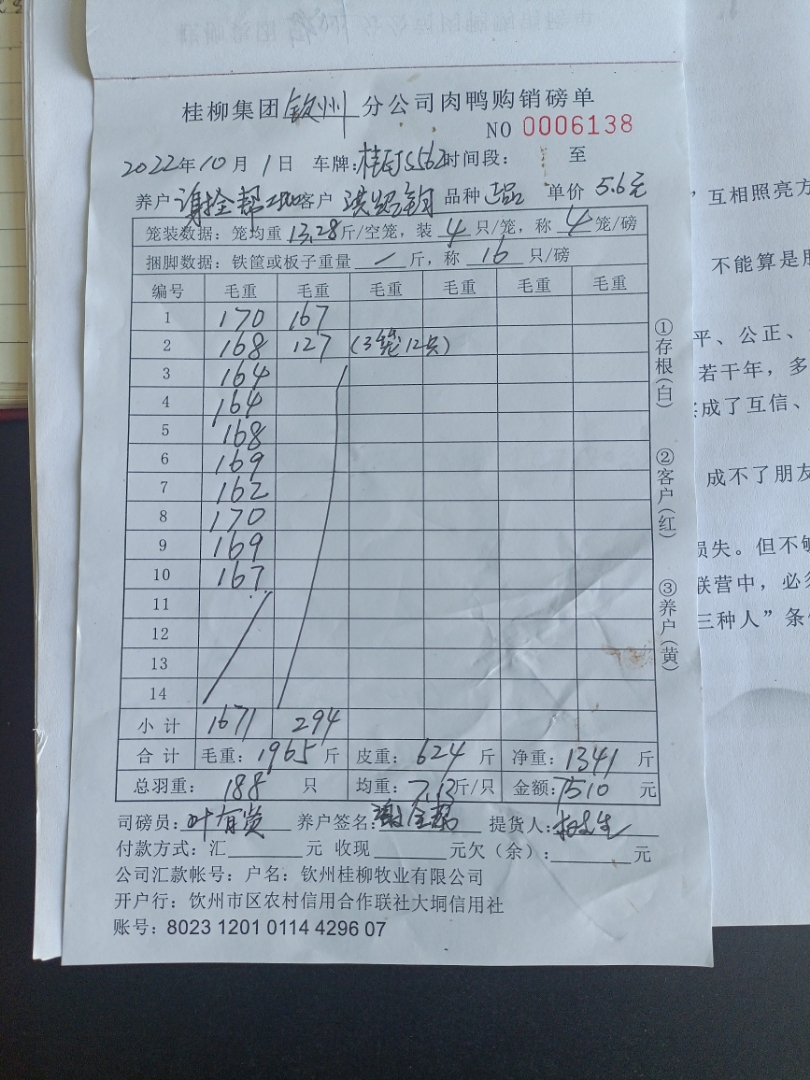 桂柳集团钦州分公司肉鸭购销磅单
NO 0006138
2022年10月1日 车牌:桂 5562时间段: 至
养户 客户 品种 正品 单价 5.6元
笼装数据:笼均重13.28斤/空笼,装4只/笼,称4笼/磅
捆脚数据:铁筐或板子重量一斤,称16只/磅
编号 毛重 毛重 毛重 毛重 毛重 毛重
1 170 167
2 168 127 (3笼12只)
3 164
4 164
5 168
6 169
7 162
8 170
9 169
10 167
11
12
13
14
小计 1671 294
合计 毛重:1965斤 皮重:624斤 净重:1341斤
总羽重:188只 均重:7.13斤/只 金额:7510元
司磅员:叶有贵 养户签名:谢全帮 提货人:
付款方式:汇 元 收现 元欠(余): 元
公司汇款帐号:户名:钦州桂柳牧业有限公司
开户行:钦州市区农村信用合作联社大垌信用社
账号:8023 1201 0114 4296 07
①存根(白)
②客户(红)
③养户(黄)
,互相照亮方
不能算是朋
平、公正、
若干年,多
成了互信、
成不了朋友
损失。但不够
联营中,必须
三种人”条件